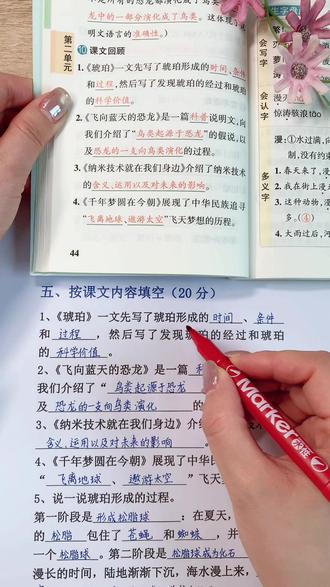 龙中的一部分演化成了鸟类。这体现了说
明文语言的准确性。)
第二单元
10 课文回顾
1.《琥珀》一文先写了琥珀形成的时间、条件
和过程,然后写了发现琥珀的经过和琥珀
的科学价值。
2.《飞向蓝天的恐龙》是一篇科普说明文,向
我们介绍了“鸟类起源于恐龙”的假说,以
及恐龙的一支向鸟类演化的过程。
3.《纳米技术就在我们身边》介绍了纳米技术
的含义、运用以及对未来的影响。
4.《千年梦圆在今朝》展现了中华民族追寻
“飞离地球、遨游太空”飞天梦想的历程。
44
会写字
会认字
多义字
惊涛骇浪
漫:①水过满,向
制,没有约
1.春天来了,漫
2.我在街上漫
3.这个人想像
多。(④)
4.大雨过后,河
五、按课文内容填空(20分)
1、《琥珀》一文先写了琥珀形成的 时间、条件
和 过程 ,然后写了发现琥珀的经过和琥珀
的 科学价值 。
2、《飞向蓝天的恐龙》是一篇 科
我们介绍了“ 鸟类起源于恐龙
及 恐龙的一支向鸟类演化 的
3、《纳米技术就在我们身边》介绍
含义、运用以及对未来的影响
4、《千年梦圆在今朝》展现了中华民
“ 飞离地球 、 遨游太空 ”飞天
5、说一说琥珀形成的过程。
第一阶段是 形成松脂球 :在夏天,
的 松脂 包住了 苍蝇 和 蜘蛛 ,并
一个 松脂球 。第二阶段是 松脂球成为化石
漫长的时间,陆地渐渐下沉,海水漫上来,
Marker